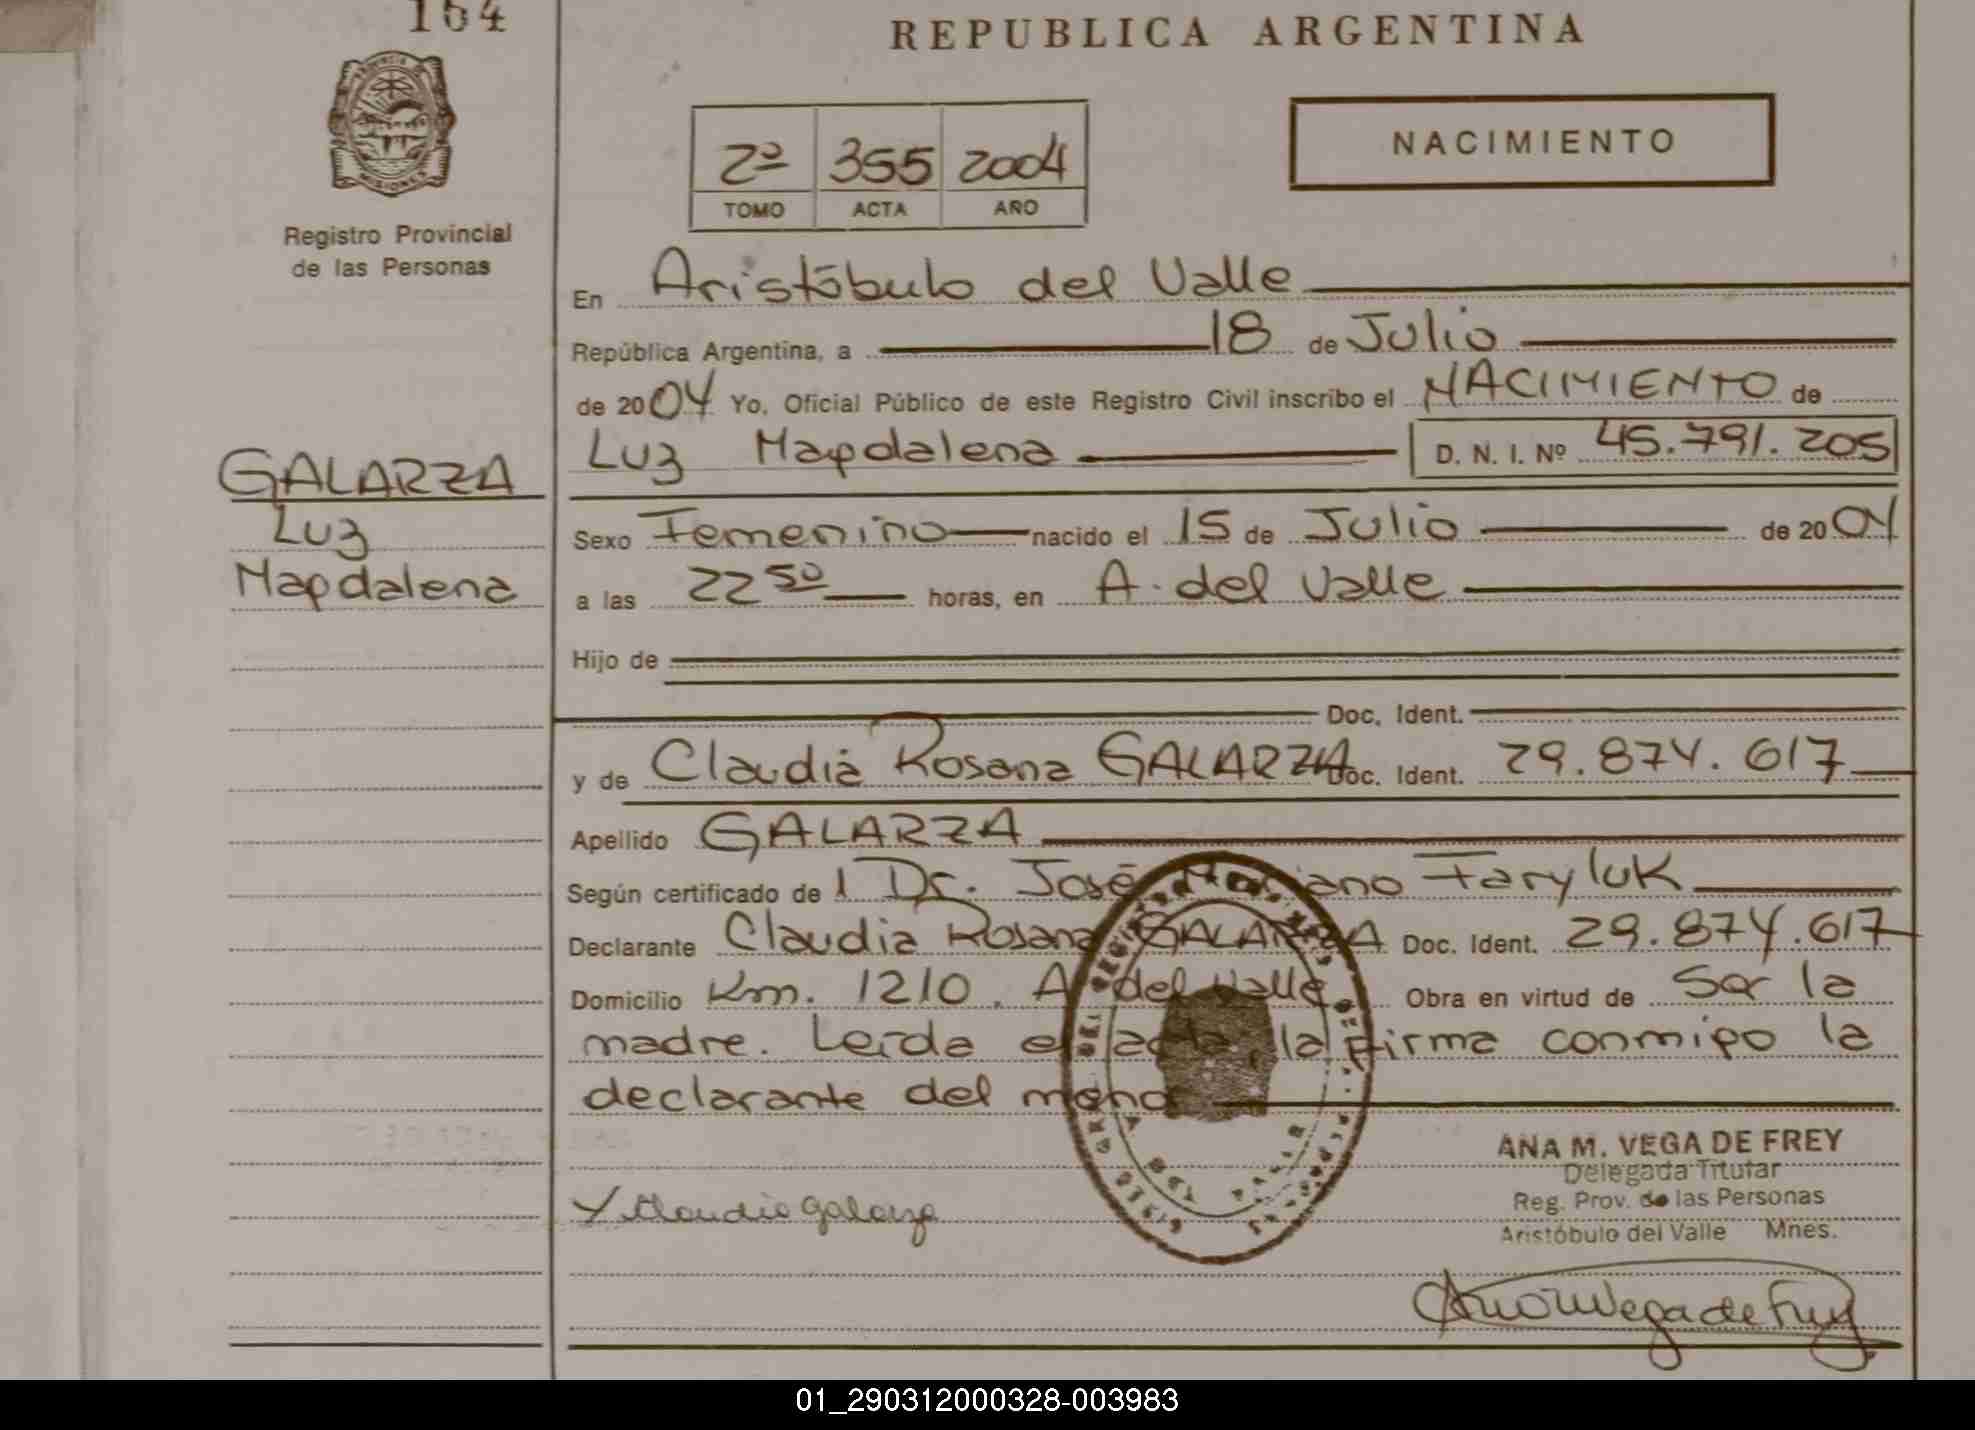 164
REPUBLICA ARGENTINA
PROVINCIA DE
MISIONES
Registro Provincial
de las Personas
2º 355 2004
TOMO ACTA AÑO
NACIMIENTO
En Aristóbulo del Valle
República Argentina, a 18 de Julio
de 2004 Yo, Oficial Público de este Registro Civil inscribo el NACIMIENTO de
Luz Magdalena D. N. I. Nº 45.791.205
GALARZA
Luz
Magdalena
Sexo Femenino nacido el 15 de Julio de 2004
a las 22 50 horas, en A. del Valle
Hijo de
Doc. Ident.
y de Claudia Rosana GALARZA Doc. Ident. 29.874.617
Apellido GALARZA
Según certificado de l Dr. José Mariano Faryluk
Declarante Claudia Rosana GALARZA Doc. Ident. 29.874.617
Domicilio Km. 1210, A. del Valle Obra en virtud de Ser la
madre. Leída el acta, la firma conmigo la
declarante del
Claudia Galarza
ANA M. VEGA DE FREY
Delegada Titular
Reg. Prov. de las Personas
Aristóbulo del Valle Mnes.
Ana M Vega de Frey
01_290312000328-003983